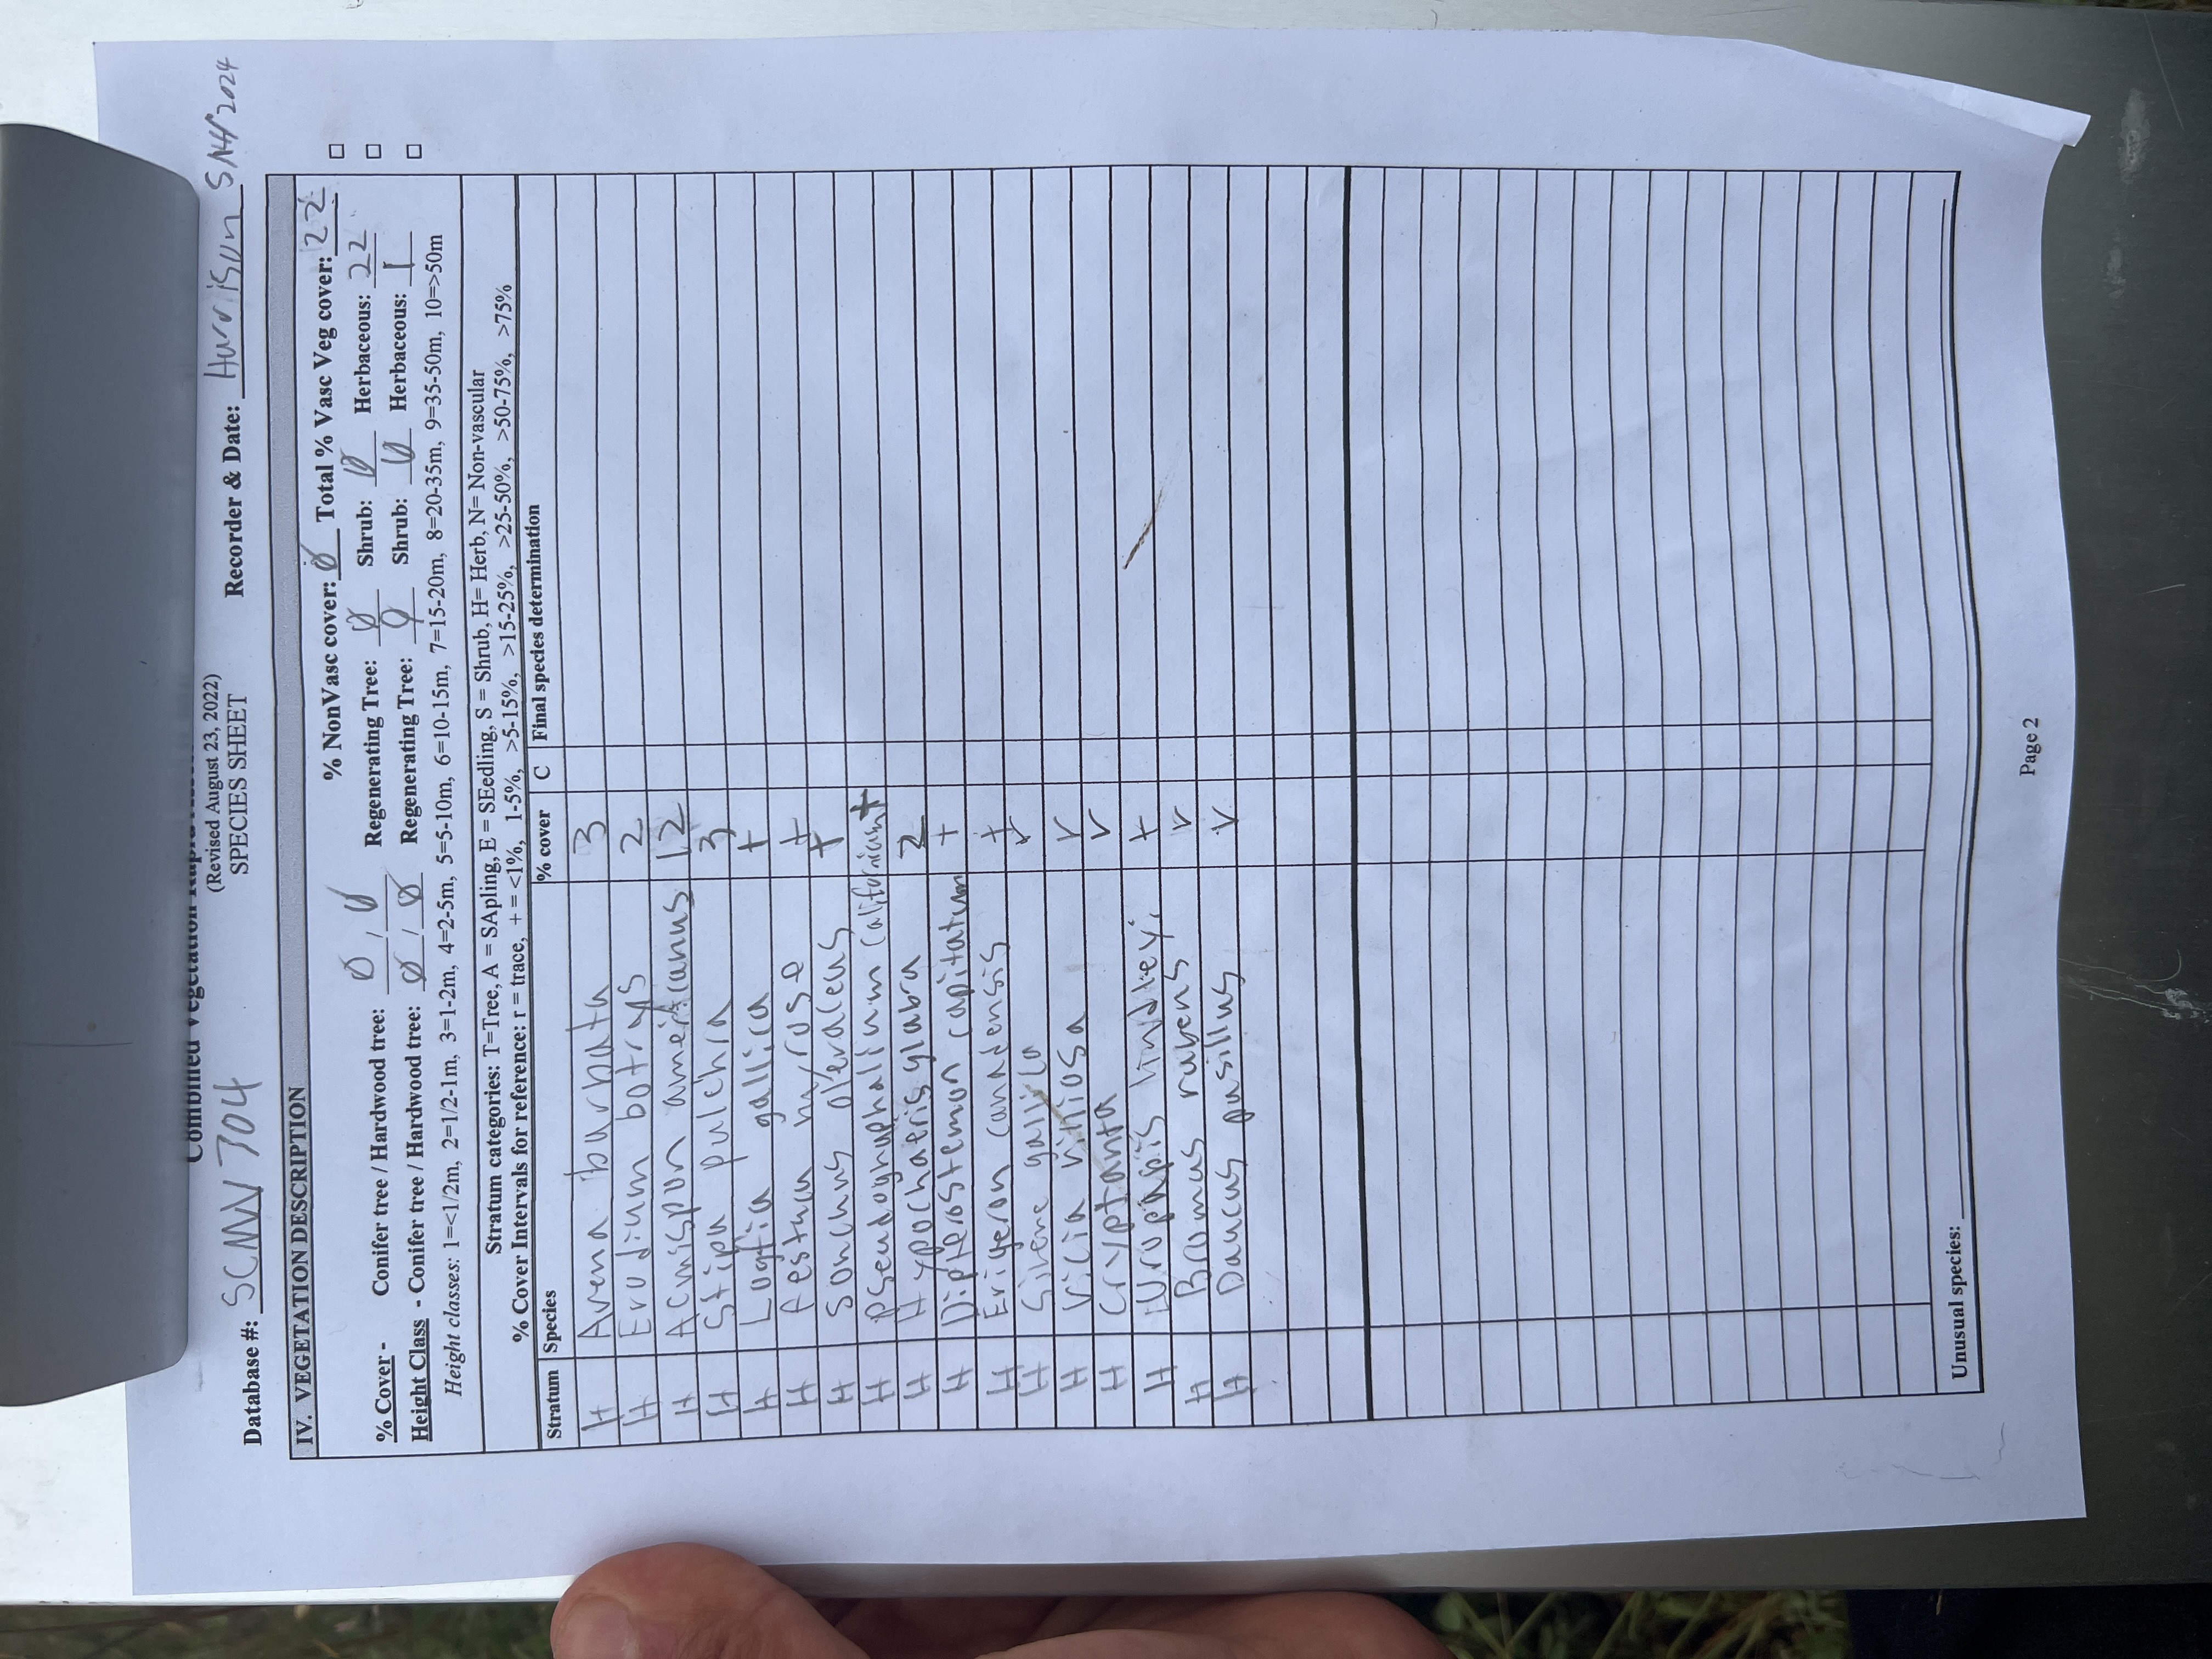 Combined Vegetation Rapid
(Revised August 23, 2022)
SPECIES SHEET
Database #: SCNN 704 Recorder & Date: Harrison 2024
IV. VEGETATION DESCRIPTION
% NonVasc cover: Ø Total % Vasc Veg cover: 22 □
% Cover - Conifer tree / Hardwood tree: Ø / Ø Regenerating Tree: Ø Shrub: Ø Herbaceous: 22 □
Height Class - Conifer tree / Hardwood tree: Ø / Ø Regenerating Tree: Ø Shrub: Ø Herbaceous: 1 □
Height classes: 1=<1/2m, 2=1/2-1m, 3=1-2m, 4=2-5m, 5=5-10m, 6=10-15m, 7=15-20m, 8=20-35m, 9=35-50m, 10=>50m
Stratum categories: T=Tree, A = SApling, E = SEedling, S = Shrub, H= Herb, N= Non-vascular
% Cover Intervals for reference: r = trace, + = <1%, 1-5%, >5-15%, >15-25%, >25-50%, >50-75%, >75%
Stratum Species % cover C Final species determination
H Avena barbata 3
H Erodium botrys 2
H Acmispon americanus 12
H Stipa pulchra 3
H Logfia gallica +
H Festuca myrose +
H Sonchus oleraceus +
H Pseudognaphalium californicum +
H Hypochaeris glabra 2
H Dipterostemon capitatum +
H Erigeron canadensis +
H Silene gallica r
H Vicia villosa r
H Cryptantha r
H Uropappis lindleyi +
H Bromus rubens r
H Daucus pusillus r
Unusual species:
Page 2